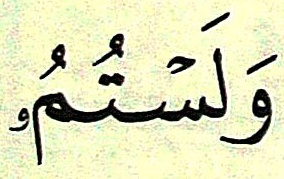 وَلَسْتُمُۥ